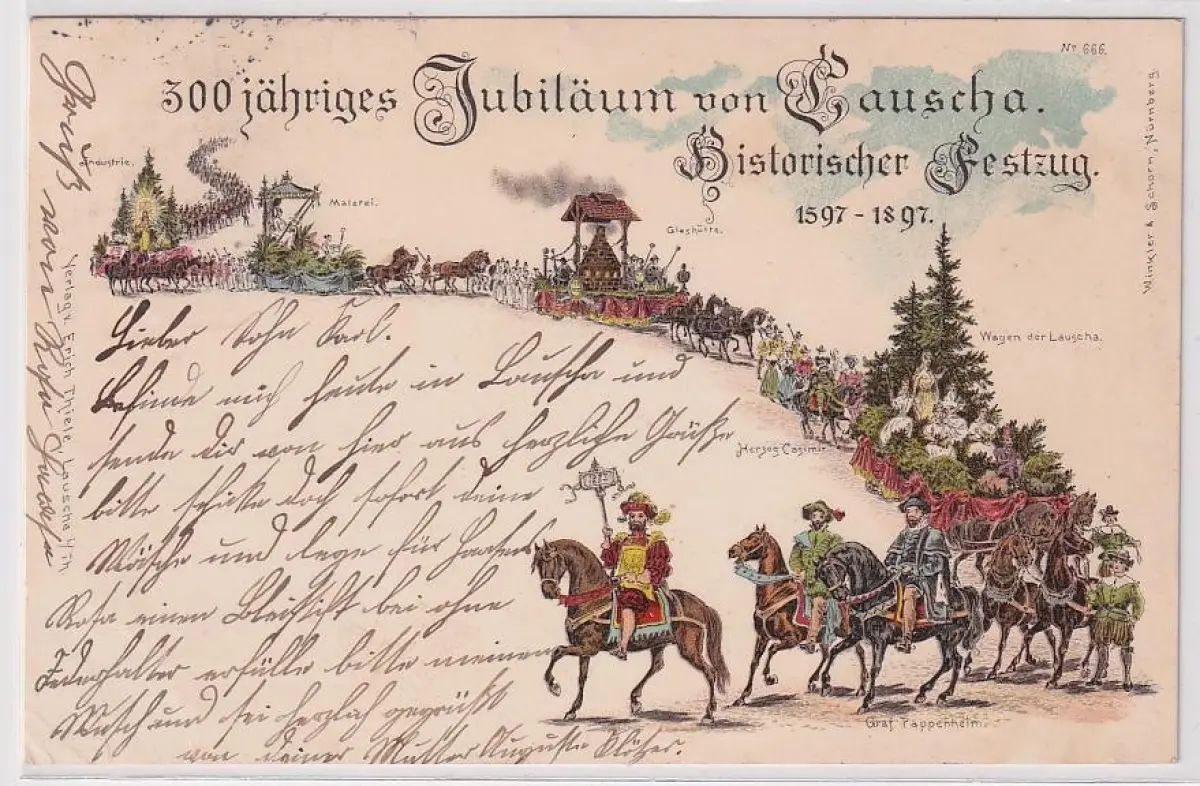 Nr. 666.
300 jähriges Jubiläum von Lauscha.
Historischer Festzug.
1597 - 1897.
Industrie.
Malerei.
Glashütte.
Wagen der Lauscha.
Herzog Casimir.
Graf Pappenheim.
Winkler & Schorn, Nürnberg.
Verlag v. Erich Thiele, Lauscha i/Th
Gruß von Rosa
Lieber Sohn Karl.
Befinde mich heute in Lauscha und
sende dir von hier aus herzliche Grüße
bitte schicke doch sofort deine
Wäsche und lege für
Rosa einen Bleistift bei ohne
Federhalter erfülle bitte meinen
Wunsch und sei herzlich gegrüßt
von deiner Mutter Auguste